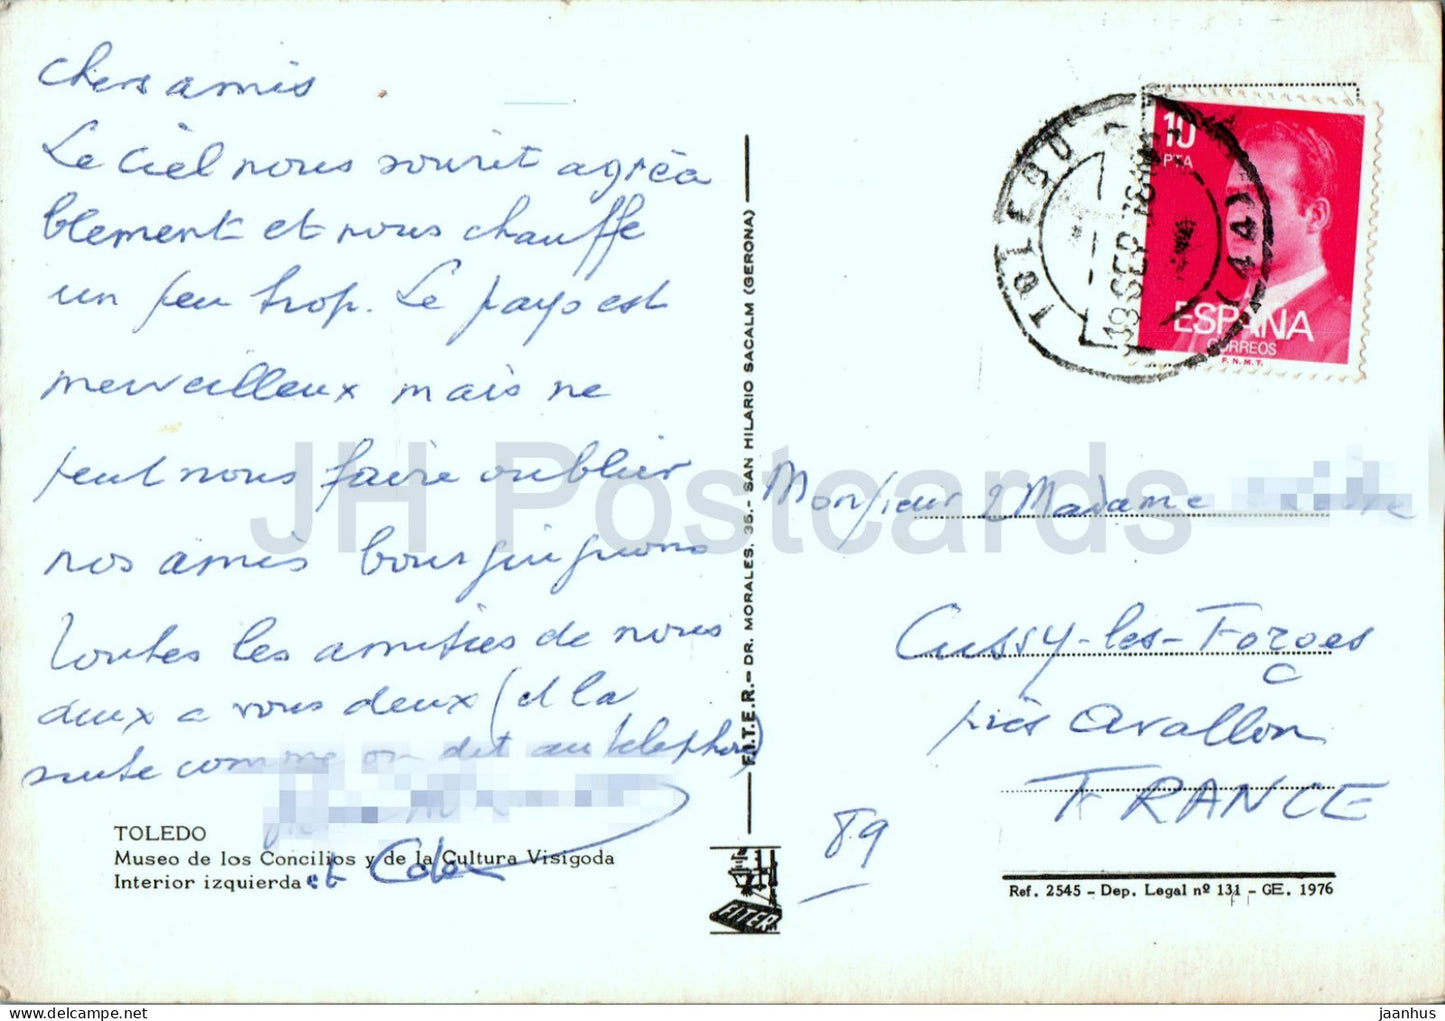 chers amis
Le ciel nous sourit agréa
blement et nous chauffe
un peu trop. Le pays est
merveilleux mais ne
peut nous faire oublier
nos amis bourguignons
Toutes les amitiés de nous
deux a vous deux (et la
suite comme on dit au telephone)
et
TOLEDO
Museo de los Concilios y de la Cultura Visigoda
Interior izquierda
F.I.T.E.R. - DR. MORALES, 35. - SAN HILARIO SACALM (GERONA)
FITER
TOLEDO
18 SEP 78
(44)
10
PTA
ESPAÑA
CORREOS
F.N.M.T.
Monsieur & Madame
Cussy-les-Forges
près Avallon
FRANCE
89
Ref. 2545 - Dep. Legal nº 131 - GE. 1976
JH Postcards
jaanhus © delcampe.net